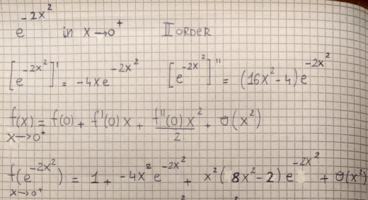 e^{-2x^2} in x→0^+ II ORDER
[e^{-2x^2}]' = -4xe^{-2x^2} [e^{-2x^2}]'' = (16x^2-4)e^{-2x^2}
f(x) = f(0) + f'(0)x + f''(0)x^2/2 + o(x^2)
x→0^+
f(e^{-2x^2}) = 1 + -4x^2 e^{-2x^2} + x^2(8x^2-2)e^{-2x^2} + o(x^2)
x→0^+